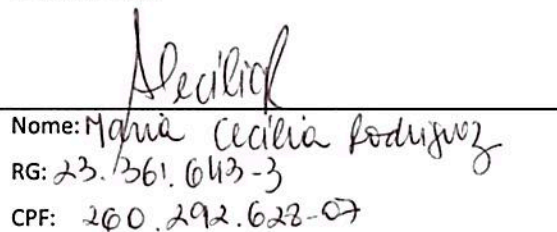 Nome: Maria Cecilia Rodriguez
RG: 23.361.643-3
CPF: 260.292.628-07